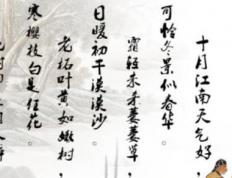 十月江南天气好，
可怜冬景似春华。
霜轻未杀萋萋草，
日暖初干漠漠沙。
老柘叶黄如嫩树，
寒樱枝白是狂花。